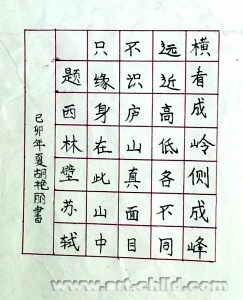 横看成岭侧成峰
远近高低各不同
不识庐山真面目
只缘身在此山中
题西林壁 苏轼
己卯年夏胡艳丽书
www.art-child.com